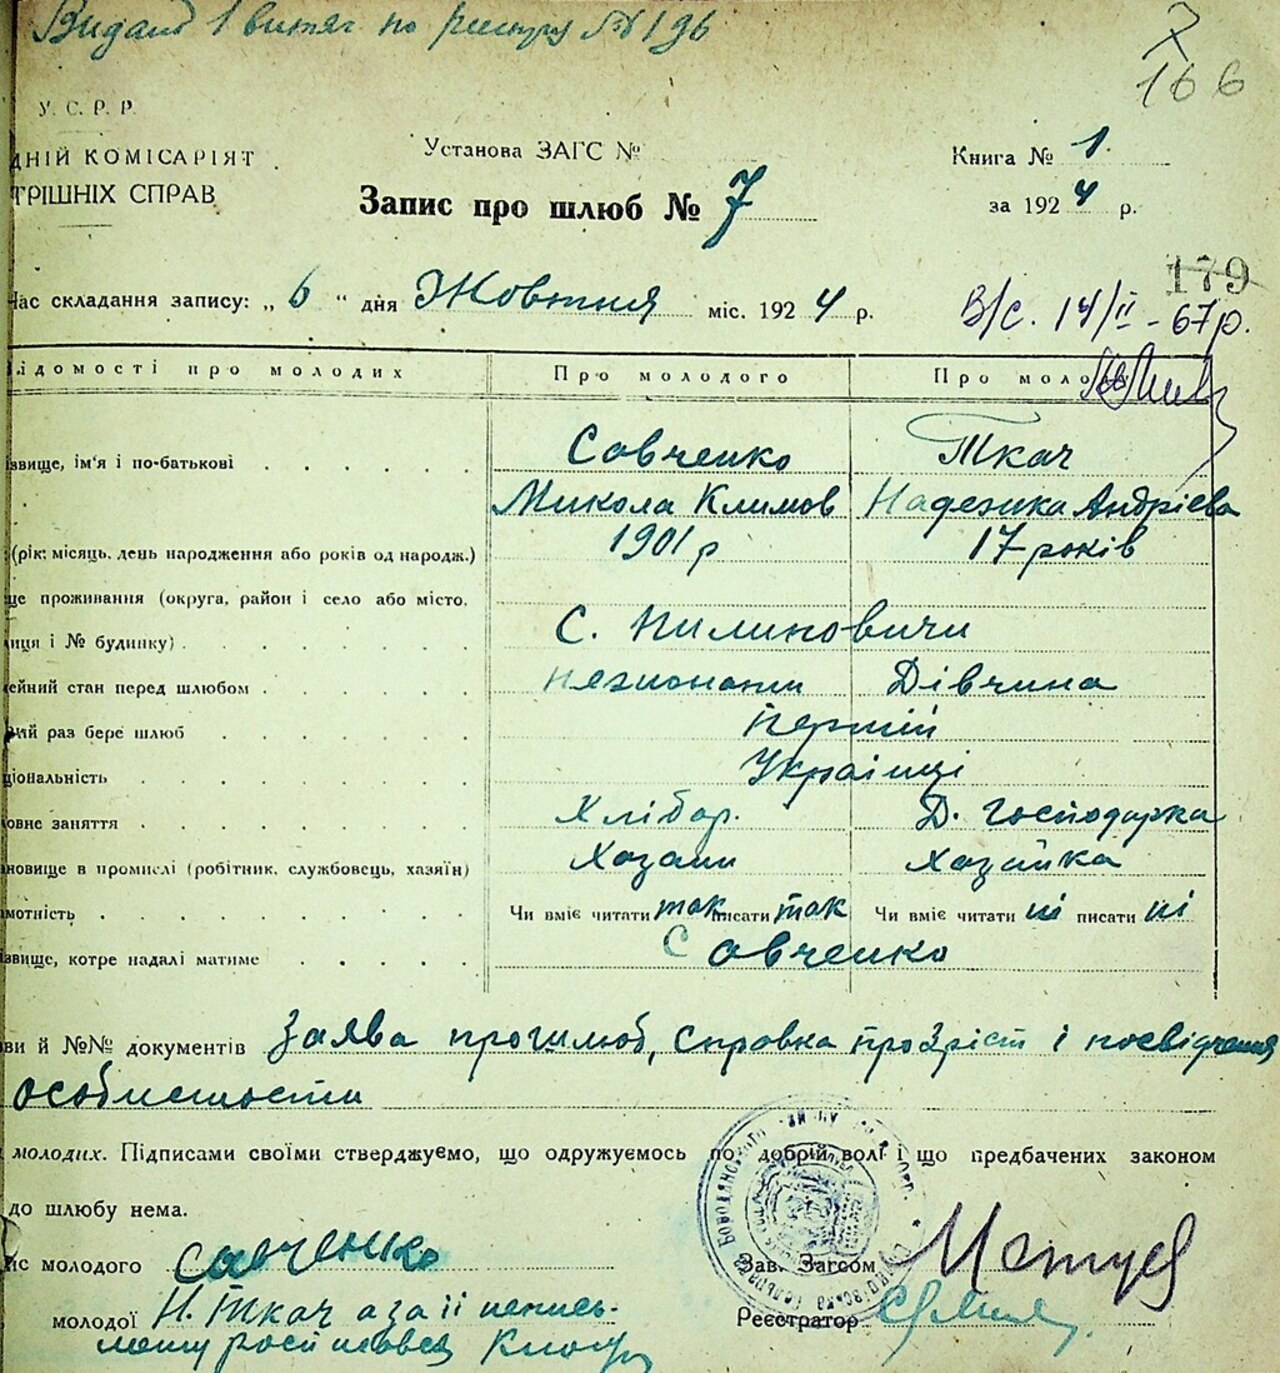 Видано 1 витяг по реєстру № 196
7
166
У. С. Р. Р.
ДНІЙ КОМІСАРІЯТ
ТРІШНІХ СПРАВ
Установа ЗАГС №
Книга № 1.
Запис про шлюб № 7
за 1924 р.
179
Час складання запису: „ 6 “ дня Жовтня міс. 1924 р.
В/с. 14/II - 67 р.
ідомості про молодих
Про молодого
Про молоду
звище, ім'я і по-батькові
Савченко
Ткач
Микола Климов
Надежка Андрієва
(рік, місяць, день народження або років од народж.)
1901 р
17 років
це проживання (округа, район і село або місто,
иця і № будинку)
С. Пилиповичи
ейний стан перед шлюбом
Дівчина
ий раз бере шлюб
перший
ціональність
Українці
овне заняття
Хлібор.
Д. Господарка
новище в промислі (робітник, службовець, хазяїн)
Хазаин
Хазяйка
мотність
Чи вміє читати так писати так
Чи вміє читати ні писати ні
звище, котре надалі матиме
Савченко
ви й №№ документів Заява прошлюб, справка прозріст і посвідчення
особистости
молодих. Підписами своїми стверджуємо, що одружуємось по добрій волі і що предбачених законом
до шлюбу нема.
ис молодого Савченко
Зав. Загсом
молодої Н. Ткач а за її непись-
Реєстратор
менну